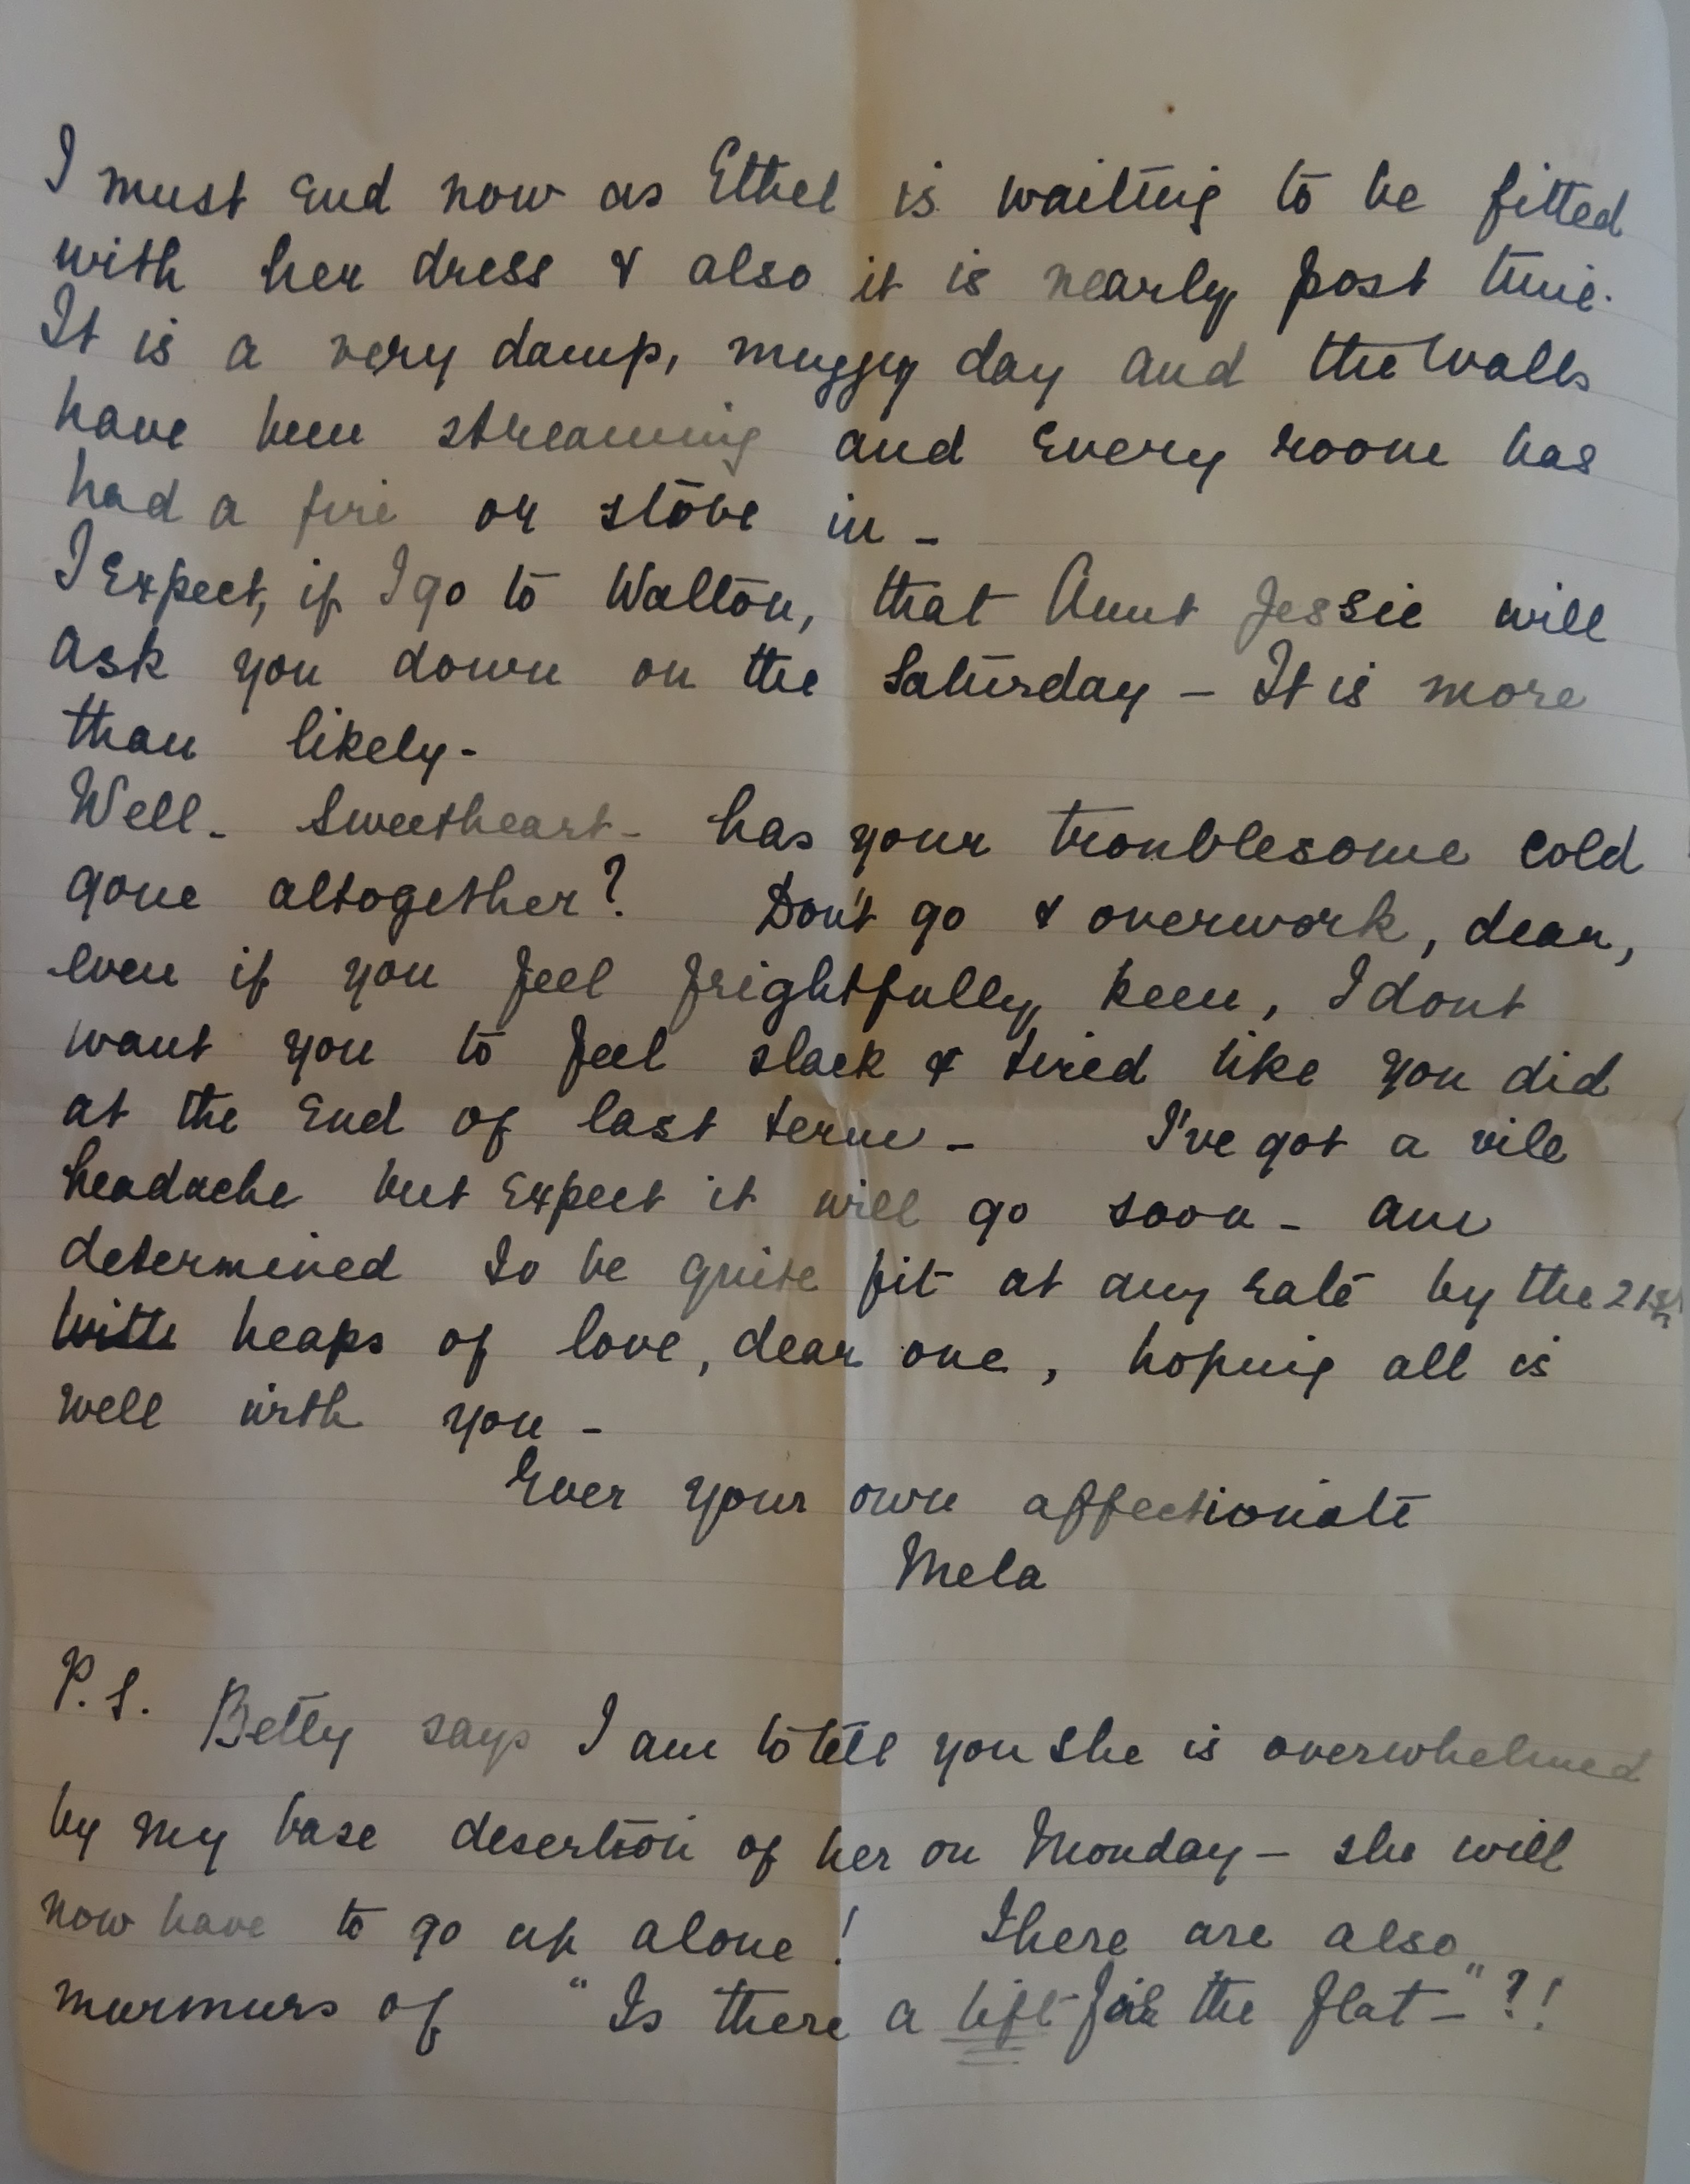 I must end now as Ethel is waiting to be fitted
with her dress & also it is nearly post time.
It is a very damp, muggy day and the walls
have been streaming and every room has
had a fire or stove in -
I expect, if I go to Walton, that Aunt Jessie will
ask you down on the Saturday - It is more
than likely -
Well - Sweetheart - has your troublesome cold
gone altogether? Don't go & overwork, dear,
even if you feel frightfully keen, I dont
want you to feel slack & tired like you did
at the end of last term - I've got a vile
headache but expect it will go soon - am
determined to be quite fit at any rate by the 21st
With heaps of love, dear one, hoping all is
well with you -
Ever your own affectionate
Mela
P.S. Betty says I am to tell you she is overwhelmed
by my base desertion of her on Monday - she will
now have to go up alone! There are also
murmurs of "Is there a lift for the flat -"?!